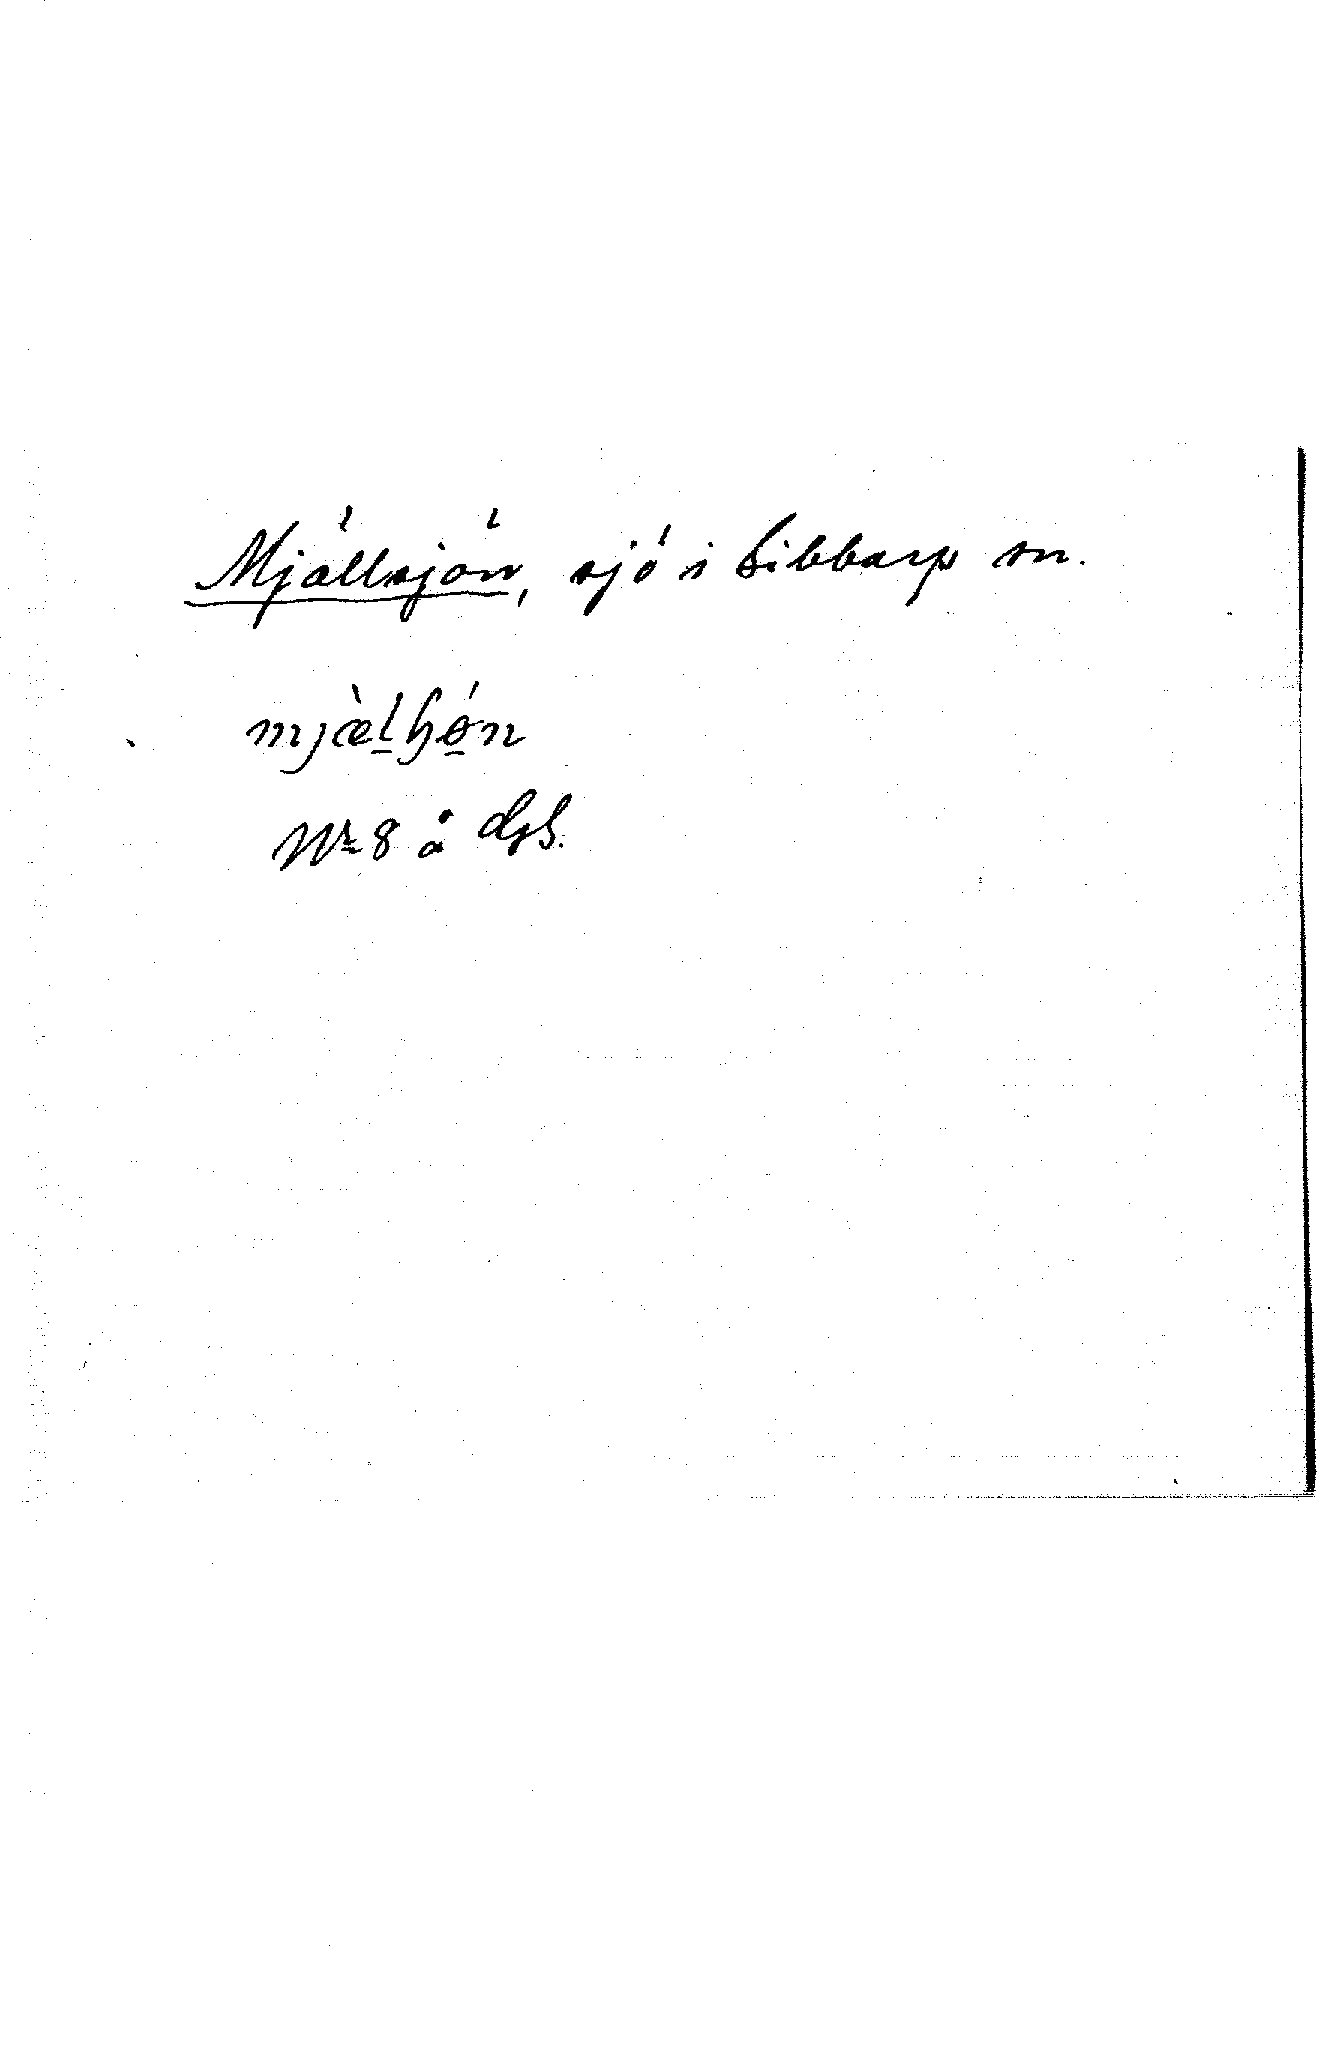 Mjällsjön, sjö i Sibbarp sn.
mjæ̀lɧǿn
Nr 8 å dgs.